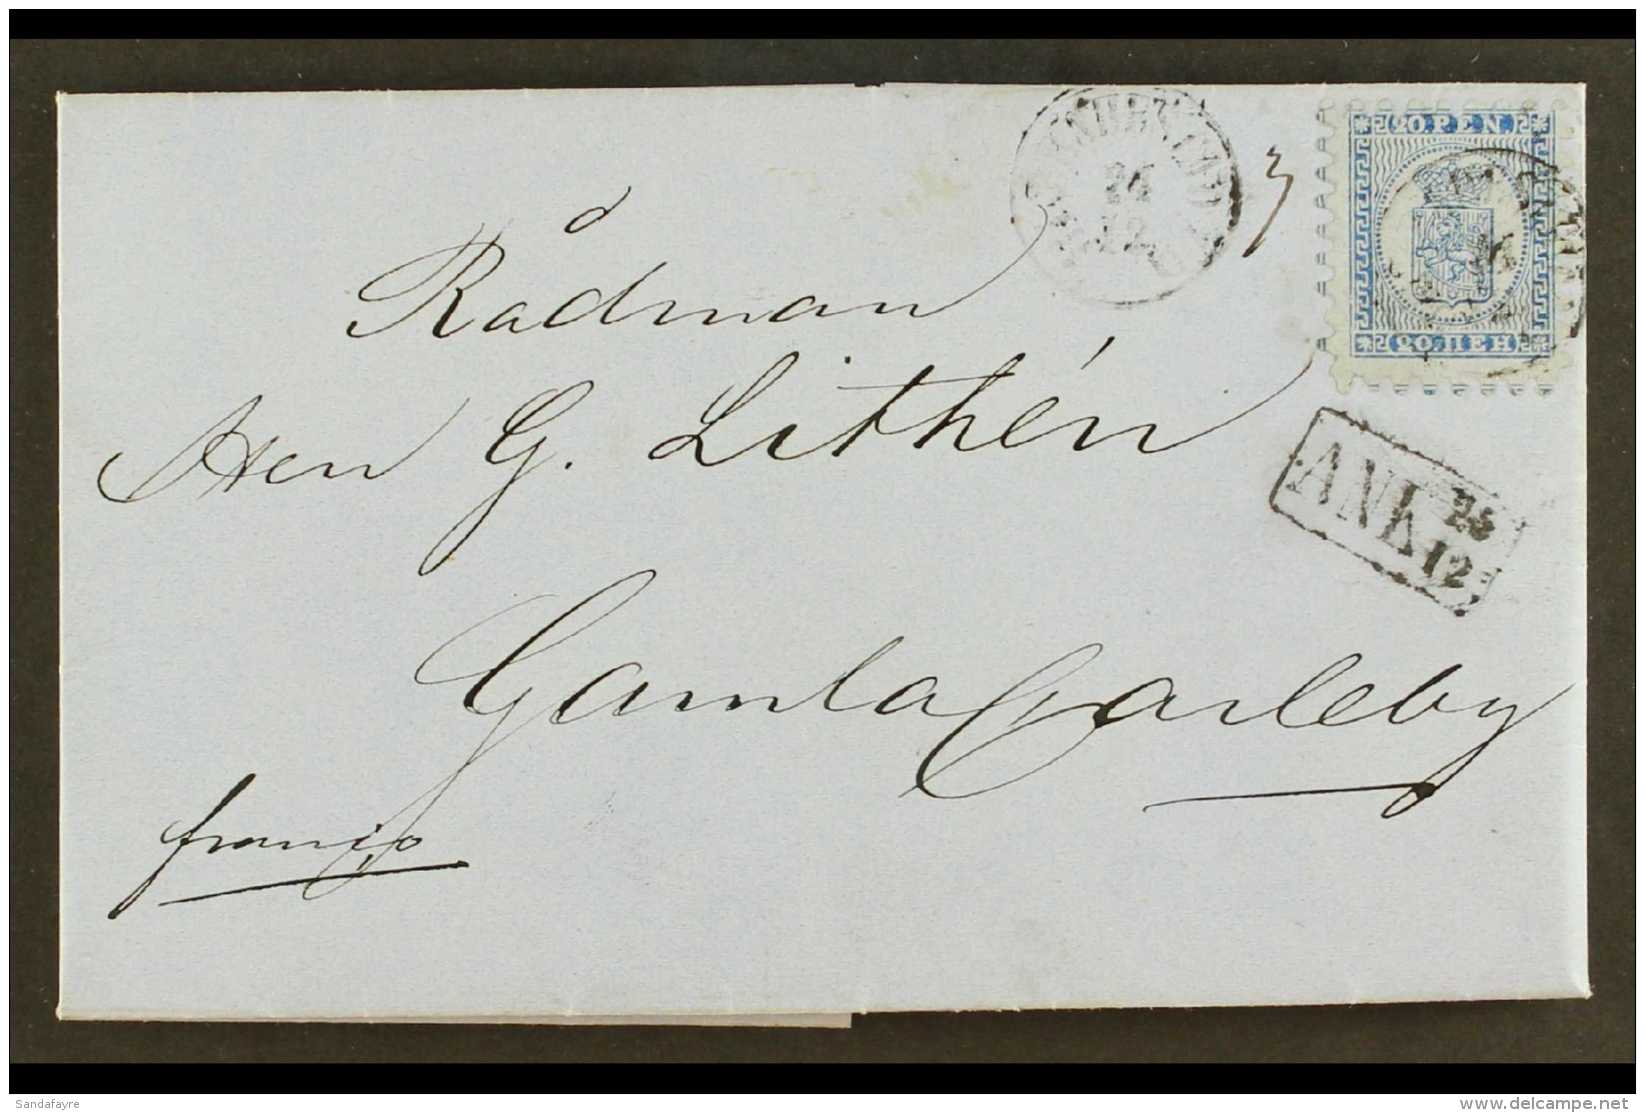 24
12
20 PEN.
20.ПЕН
Rådman
Herr G. Lithén
ANK 25
12
Gamla Carleby
franco
Sandafayre
delcampe.net